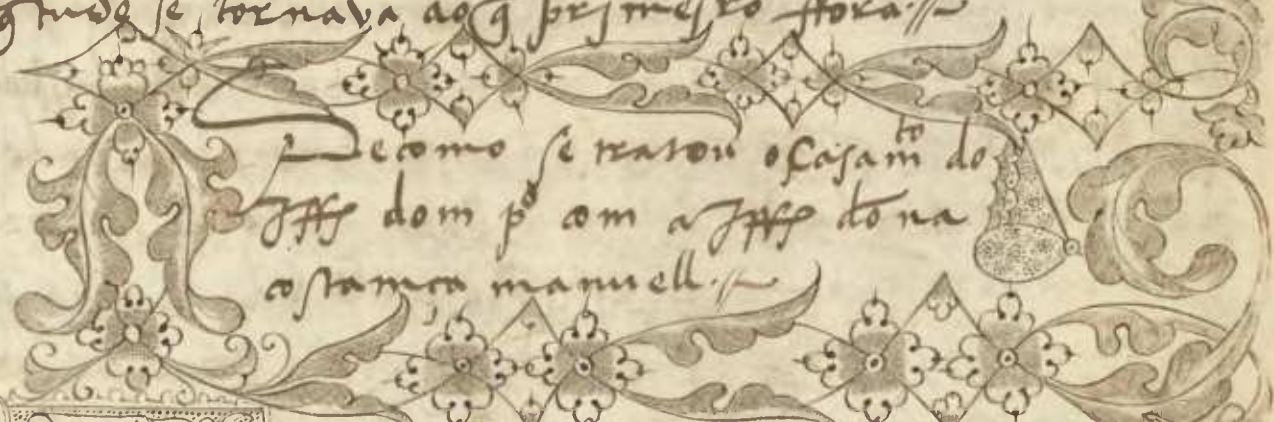 se tornava ao q̃ primeiro ffora.//
De como se tratou o Casamto do
Iff dom po com a Iff dõna
costamça manuell.//